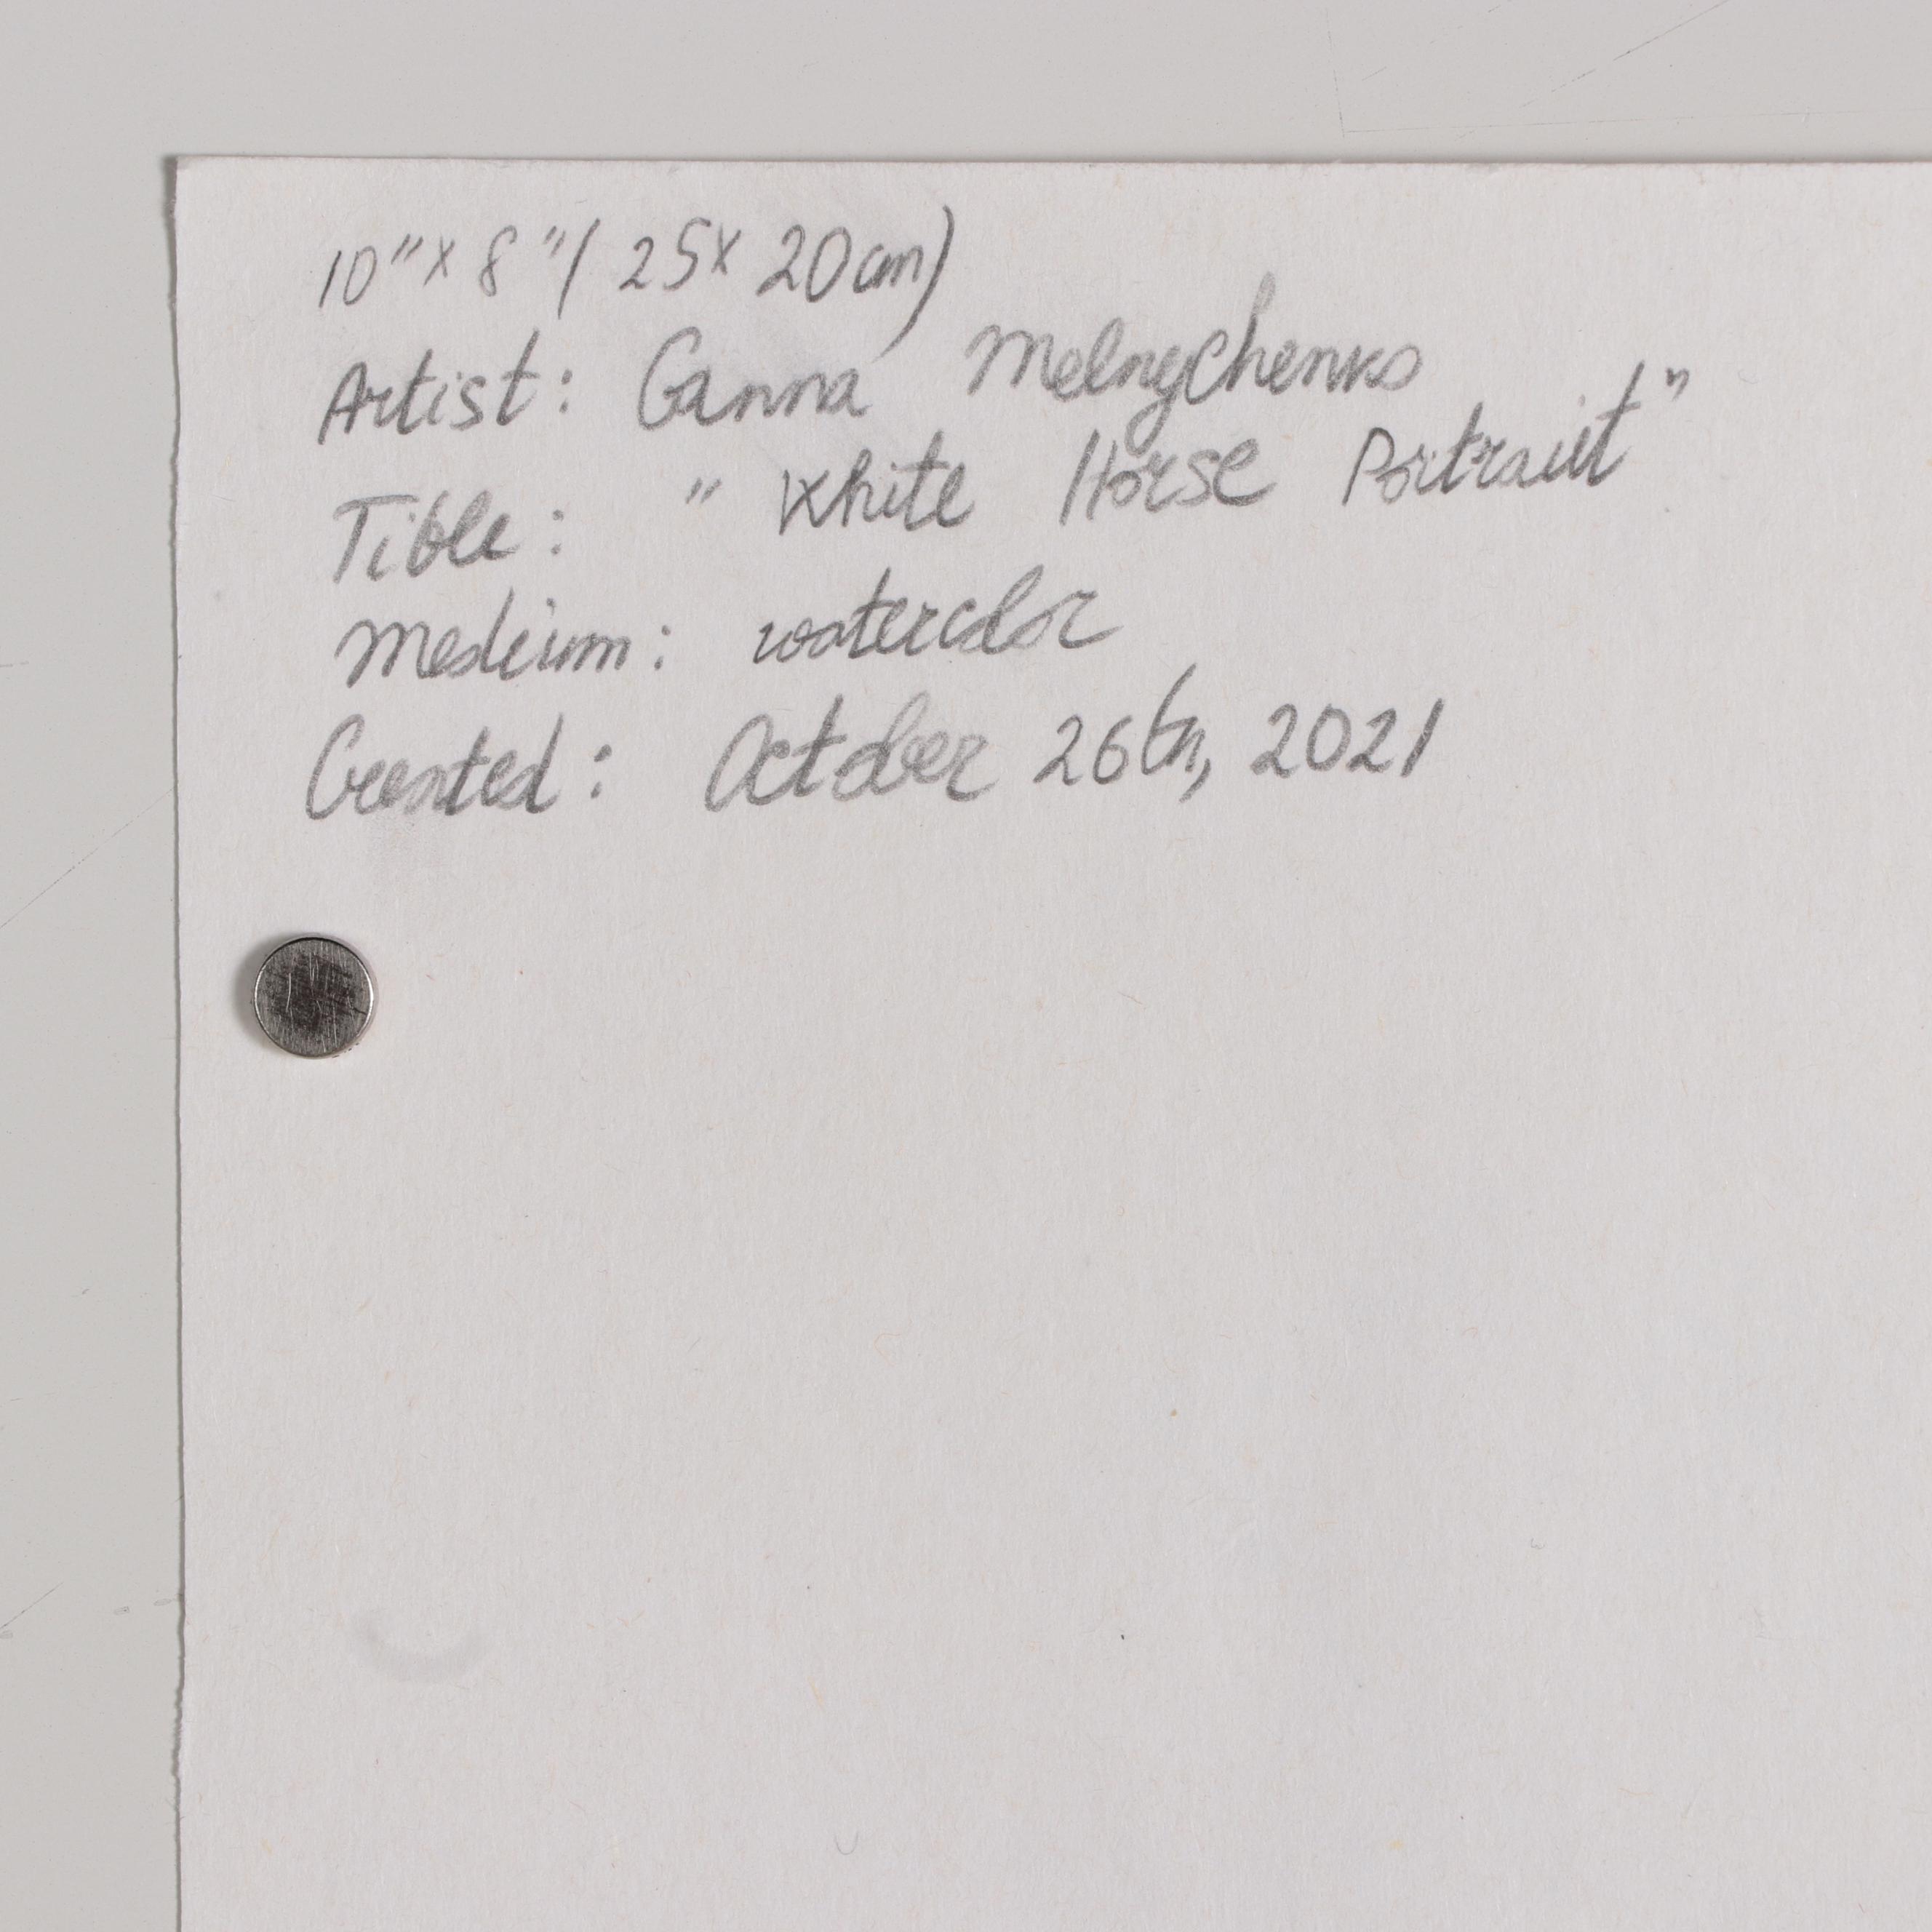 10" x 8" (25x 20cm)
Artist: Ganna Melnychenko
Title: "White Horse Portrait"
Medium: watercolor
Created: October 26th, 2021